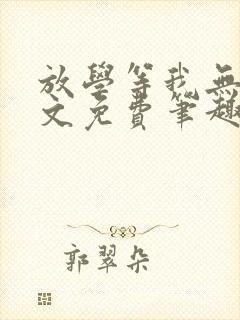 放學等我無
文免費筆趣
郭翠朵